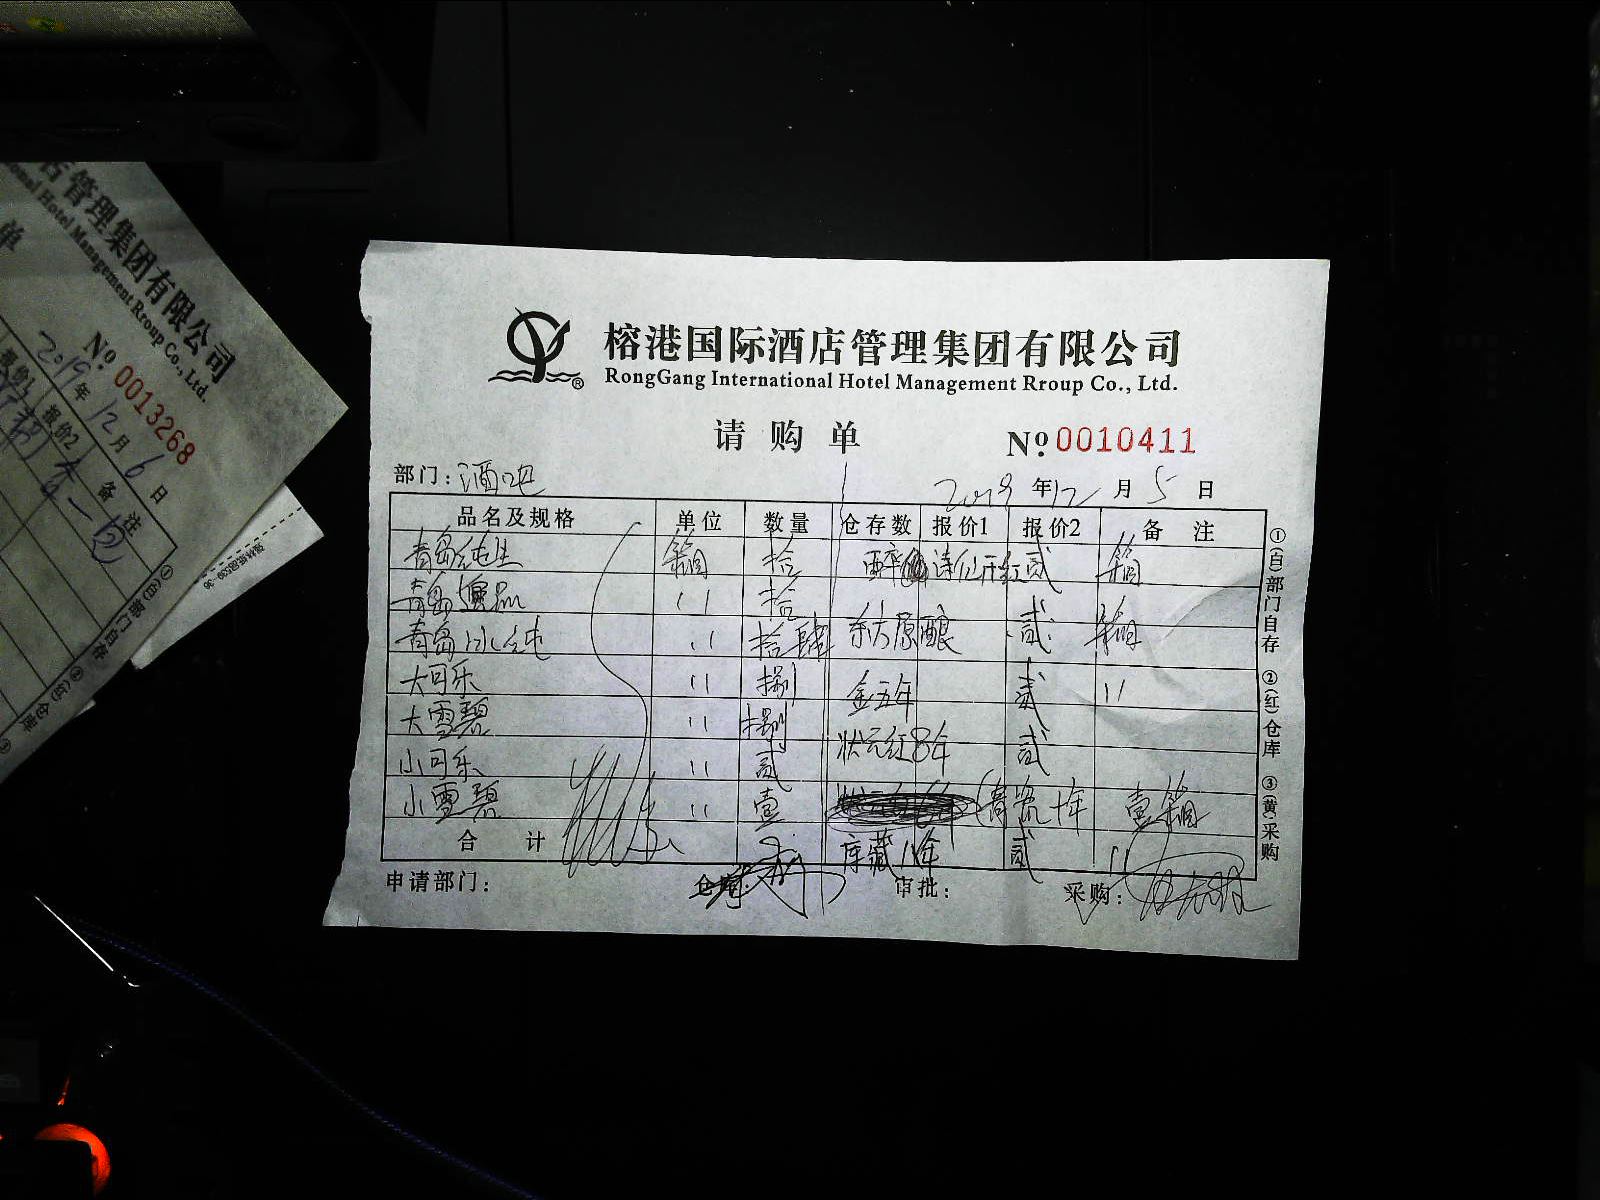 榕港国际酒店管理集团有限公司
RongGang International Hotel Management Rroup Co., Ltd.
请购单 №0010411
部门：酒吧 2019年12月5日
品名及规格 单位 数量 仓存数 报价1 报价2 备注
青岛纯生 箱 拾 醉诗仙开红 贰 箱
青岛 〃 拾
青岛冰纯 〃 拾肆 原酿 贰 箱
大可乐 〃 捌 金五年 贰 〃
大雪碧 〃 捌 状元红8年 贰
小可乐 〃 贰
小雪碧 〃 壹 十年 壹箱
合计 库藏 年 贰 〃
申请部门： 仓库： 审批： 采购：
①(白)部门自存 ②(红)仓库 ③(黄)采购
店管理集团有限公司
onal Hotel Management Rroup Co., Ltd.
单 №0013268
2019年12月6日
报价1 报价2 备注
①(白)部门自存 ②(红)仓库